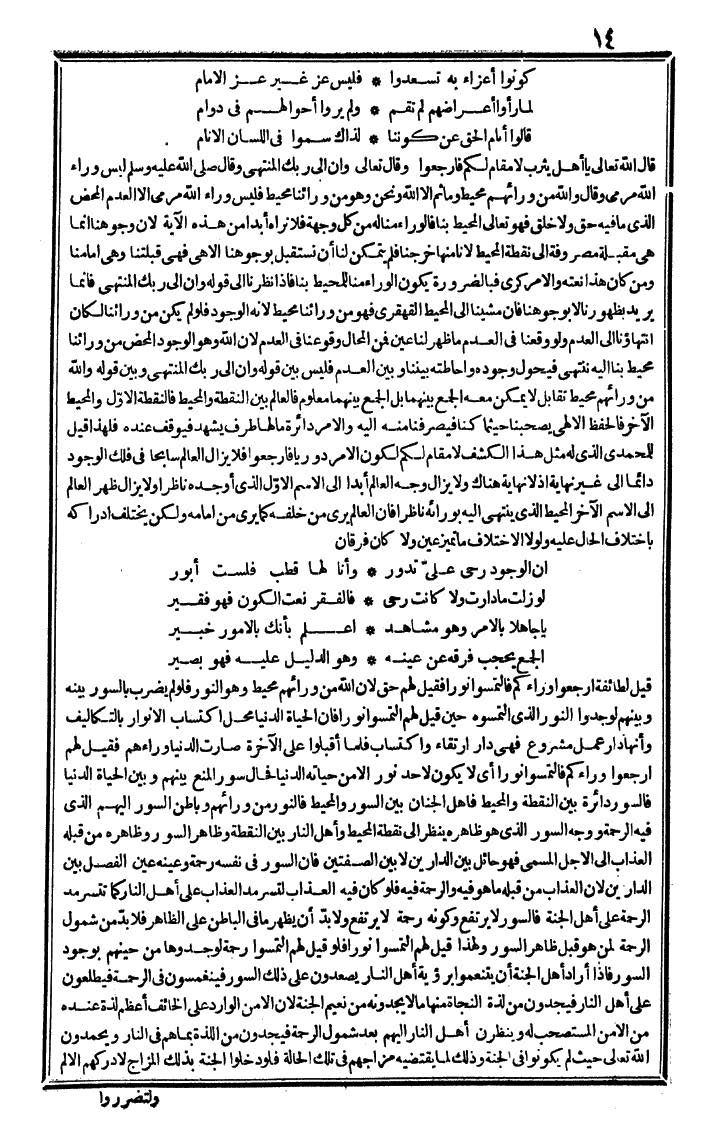 ١٤
كونوا أعزاء به تسعدوا * فليس عز غير عز الامام
لما رأوا أعراضهم لم تقم * ولم يروا أحوالهم فى دوام
قالوا أمام الحق عن كوننا * لذاك سموا فى اللسان الانام
قال الله تعالى يا أهل يثرب لا مقام لكم فارجعوا وقال تعالى وان الى ربك المنتهى وقال صلى الله عليه وسلم ليس وراء
الله مرمى وقال والله من ورائهم محيط وما ثم الا الله ونحن وهو من ورائنا محيط فليس وراء الله مرمى الا العدم المحض
الذى ما فيه حق ولا خلق فهو تعالى المحيط بنا فالوراء منا له من كل وجهة فلا نراه أبدا من هذه الآية لان وجوهنا انما
هى مقبلة مصروفة الى نقطة المحيط لانا منها خرجنا فلم يتمكن لنا أن نستقبل بوجوهنا الا هى فهى قبلتنا وهى امامنا
ومن كان هذا نعته والامر كرى فبالضرورة يكون الوراء منا للمحيط بنا فاذا نظرنا الى قوله وان الى ربك المنتهى فانما
يريد بظهورنا لا بوجوهنا فان مشينا الى المحيط القهقرى فهو من ورائنا محيط لانه الوجود فلو لم يكن من ورائنا لكان
انتهاؤنا الى العدم ولو وقعنا فى العدم ما ظهر لنا عين فمن المحال وقوعنا فى العدم لان الله وهو الوجود المحض من ورائنا
محيط بنا اليه ننتهى فيحول وجوده واحاطته بيننا وبين العدم فليس بين قوله وان الى ربك المنتهى وبين قوله والله
من ورائهم محيط تقابل لا يمكن معه الجمع بينهما بل الجمع بينهما معلوم فالعالم بين النقطة والمحيط فالنقطة الاول والمحيط
الآخر فالحفظ الالهى يصحبنا حيثما كنا فيصرفنا منه اليه والامر دائرة ما لها طرف يشهد فيوقف عنده فلهذا قيل
للمحمدى الذى له مثل هذا الكشف لا مقام لكم لكون الامر دوريا فارجعوا فلا يزال العالم سابحا فى فلك الوجود
دائما الى غير نهاية اذ لا نهاية هناك ولا يزال وجه العالم أبدا الى الاسم الاول الذى أوجده ناظرا ولا يزال ظهر العالم
الى الاسم الآخر المحيط الذى ينتهى اليه بورائه ناظرا فان العالم يرى من خلفه كما يرى من امامه ولكن يختلف ادراكه
باختلاف الحال عليه ولولا الاختلاف ما تميز عين ولا كان فرقان
ان الوجود رحى علىّ تدور * وأنا لها قطب فلست أبور
لو زلت ما دارت ولا كانت رحى * فالفقر نعت الكون فهو فقير
يا جاهلا بالامر وهو مشاهد * اعلم بأنك بالامور خبير
الجمع يحجب فرقه عن عينه * وهو الدليل عليه فهو بصير
قيل لطائفة ارجعوا وراءكم فالتمسوا نورا فقيل لهم حق لان الله من ورائهم محيط وهو النور فلو لم يضرب بالسور بينه
وبينهم لوجدوا النور الذى التمسوه حين قيل لهم التمسوا نورا فان الحياة الدنيا محل اكتساب الانوار بالتكاليف
وأنها دار عمل مشروع فهى دار ارتقاء واكتساب فلما أقبلوا على الآخرة صارت الدنيا وراءهم فقيل لهم
ارجعوا وراءكم فالتمسوا نورا أى لا يكون لاحد نور الا من حياته الدنيا فحال سور المنع بينهم وبين الحياة الدنيا
فالسور دائرة بين النقطة والمحيط فاهل الجنان بين السور والمحيط فالنور من ورائهم وباطن السور اليهم الذى
فيه الرحمة ووجه السور الذى هو ظاهره ينظر الى نقطة المحيط وأهل النار بين النقطة وظاهر السور وظاهره من قبله
العذاب الى الاجل المسمى فهو حائل بين الدارين لا بين الصفتين فان السور فى نفسه رحمة وعينه عين الفصل بين
الدارين لان العذاب من قبله ما هو فيه والرحمة فيه فلو كان فيه العذاب لتسرمد العذاب على أهل النار كما تتسرمد
الرحمة على أهل الجنة فالسور لا يرتفع وكونه رحمة لا يرتفع ولا بد أن يظهر ما فى الباطن على الظاهر فلا بد من شمول
الرحمة لمن هو قبل ظاهر السور ولهذا قيل لهم التمسوا نورا فلو قيل لهم التمسوا رحمة لوجدوها من حينهم بوجود
السور فاذا أراد أهل الجنة أن يتنعموا برؤية أهل النار يصعدون على ذلك السور فينغمسون فى الرحمة فيطلعون
على أهل النار فيجدون من لذة النجاة منها ما لا يجدونه من نعيم الجنة لان الامن الوارد على الخائف أعظم لذة عنده
من الامن المستصحب له وينظرن أهل النار اليهم بعد شمول الرحمة فيجدون من اللذة بما هم فى النار ويحمدون
الله تعالى حيث لم يكونوا فى الجنة وذلك لما يقتضيه مزاجهم فى تلك الحالة فلو دخلوا الجنة بذلك المزاج لادركهم الالم
ولتضرروا